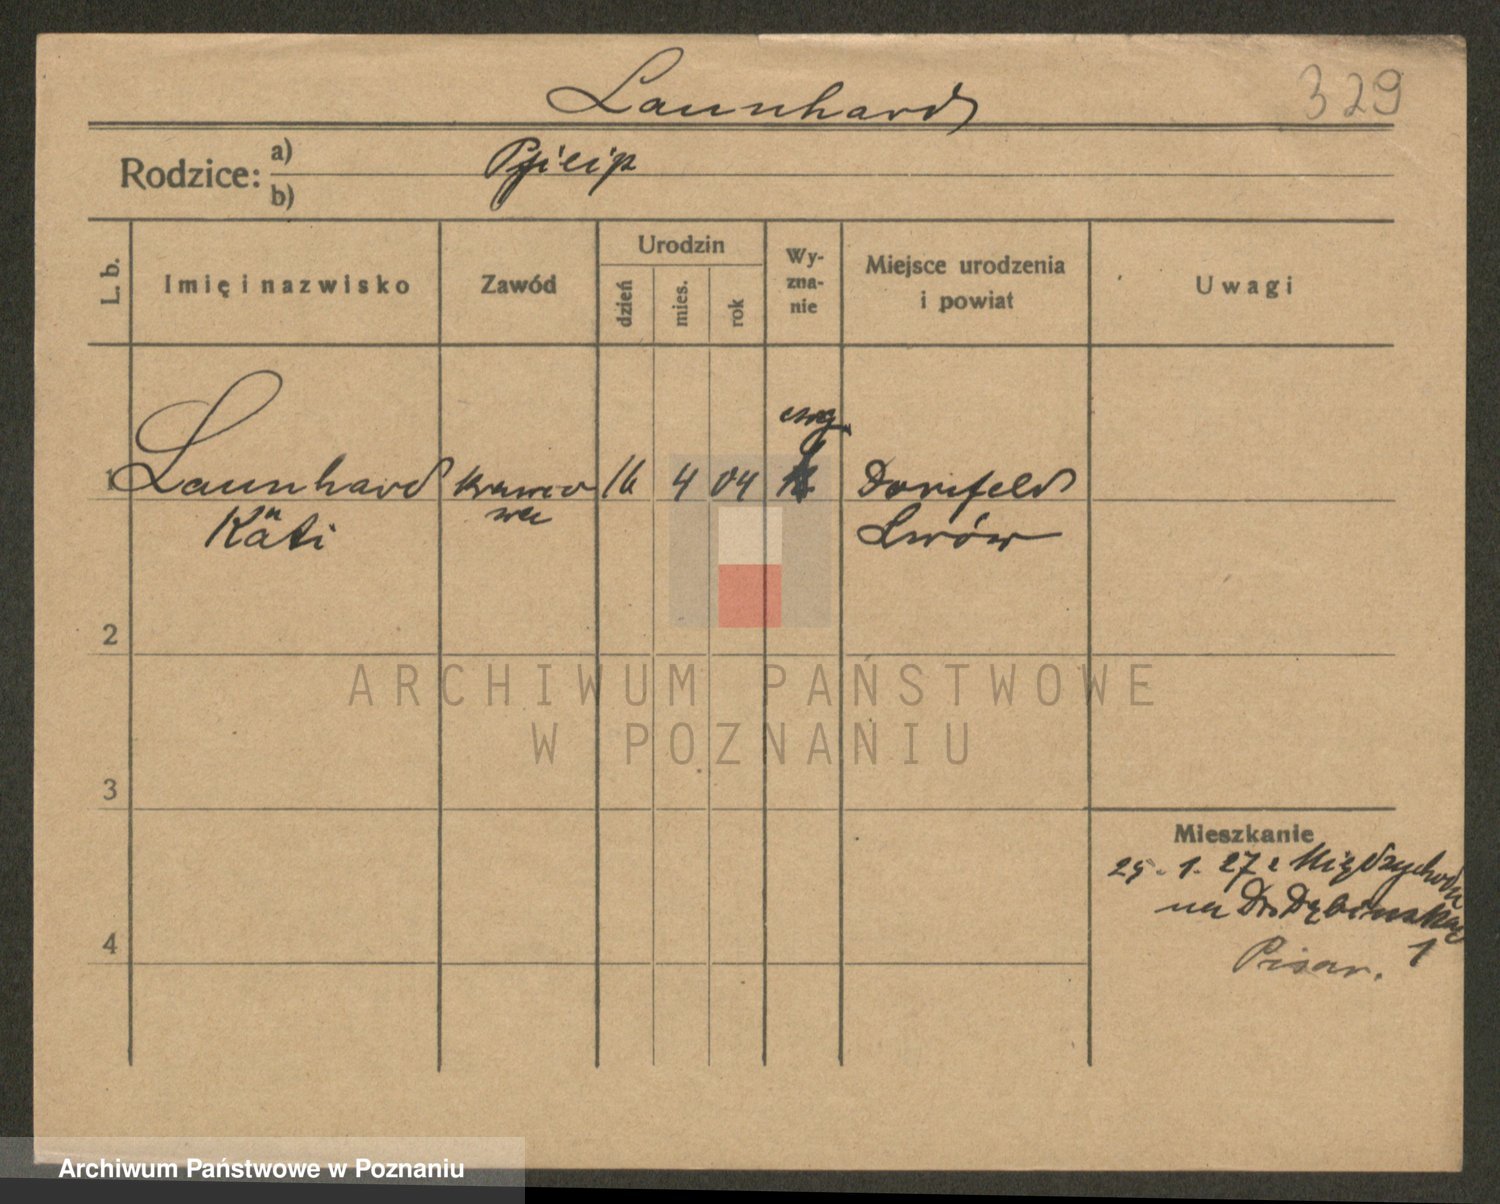 Launhard
329
Rodzice: a)
b)
L. b.
Imię i nazwisko
Zawód
Urodzin
dzień
mies.
rok
Wy-
zna-
nie
Miejsce urodzenia
i powiat
Uwagi
ewg.
1 Launhard krawco 16 4 04 Dornfeld
Käti wa Lwów
2
3
4
Mieszkanie
25. 1. 27 z Międzychodu
na Dr Dębińską
1
Pisar.
ARCHIWUM PAŃSTWOWE
W POZNANIU
Archiwum Państwowe w Poznaniu